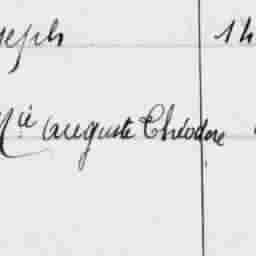 seph 14
Mie Auguste Théodore